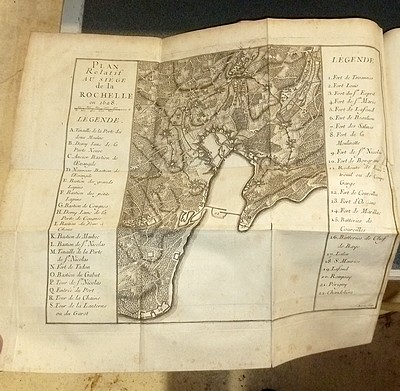 PLAN
Relatif
AU SIEGE
de la
ROCHELLE
en 1628
LEGENDE
A. Tenaille de la Porte des
deux Moulins
B. Demy Lune de la
Porte Neuve
C. Ancien Bastion de
l'Evangile
D. Nouveau Bastion de
l'Evangile
E. Bastion des grands
Lapins
F. Bastion des petits
Lapins
G. Bastion de Congnes
H. Demy Lune de la
Porte de Congnes
I. Bastion du Four à
K. Bastion de Maubec
L. Bastion de St. Nicolas
M. Tenaille de la Porte
de St. Nicolas
N. Fort de Tadon
O. Bastion du Gabut
P. Tour de St. Nicolas
Q. Entrée du Port
R. Tour de la Chaine
S. Tour de la Lanterne
ou du Garot
LEGENDE
1. Fort de
2. Fort Louis
3. Fort du St. Esprit
4. Fort de Ste. Marie
5. Fort de Lafond
6. Fort de Beaulieu
7. Fort des Salines
8. Fort de la
Moulinette
9. Fort de St. Nicolas
10. Fort de Bonne
12. Fort de Coureille
13. Fort d'Orleans
14. Fort de Marillac
15. Batteries de
Coureilles
16. Batteries de Chef
de Baye
17. Laleu
18. St. Maurice
19. Lafond
20. Rompsay
21. Perigny
22.